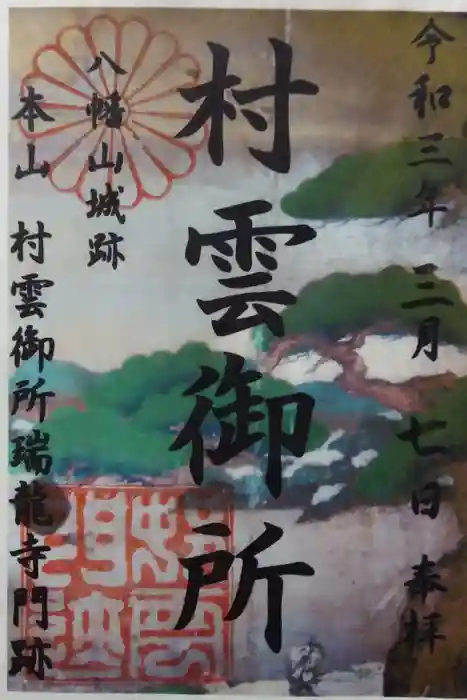 令和三年 三月 七日 奉拝
村雲御所
八幡山城跡
本山 村雲御所瑞龍寺門跡